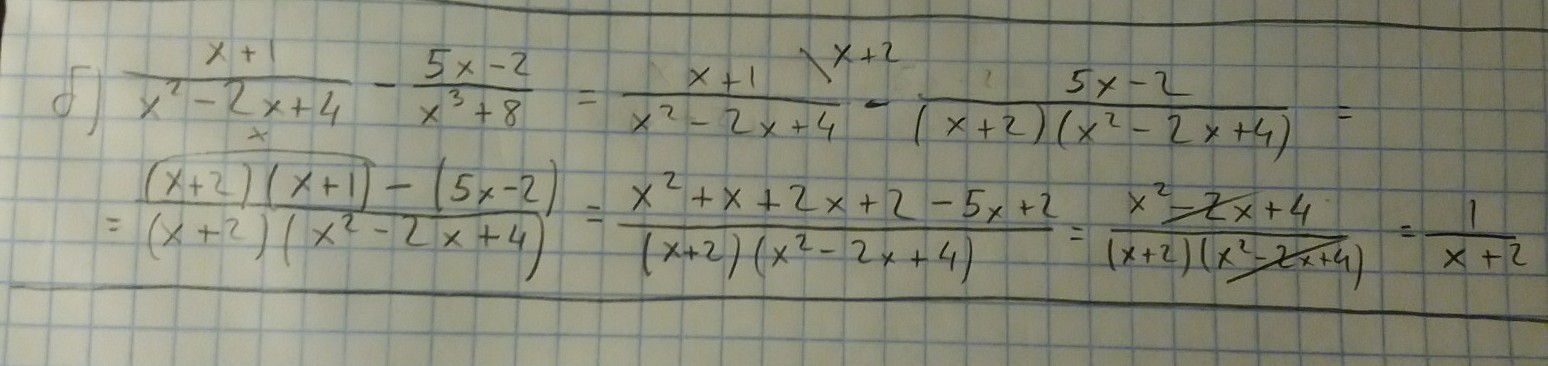 б) (x+1)/(x²-2x+4) - (5x-2)/(x³+8) = (x+1)/(x²-2x+4) \x+2 - (5x-2)/((x+2)(x²-2x+4)) =
= ((x+2)(x+1)-(5x-2))/((x+2)(x²-2x+4)) = (x²+x+2x+2-5x+2)/((x+2)(x²-2x+4)) = (x²-2x+4)/((x+2)(x²-2x+4)) = 1/(x+2)